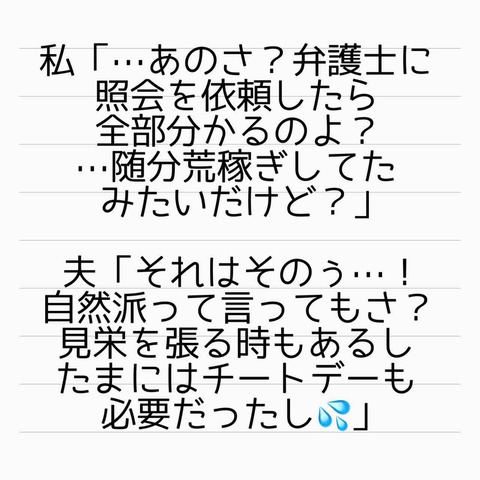 私「…あのさ？弁護士に
照会を依頼したら
全部分かるのよ？
…随分荒稼ぎしてた
みたいだけど？」
夫「それはそのぅ…！
自然派って言ってもさ？
見栄を張る時もあるし
たまにはチートデーも
必要だったし💦」